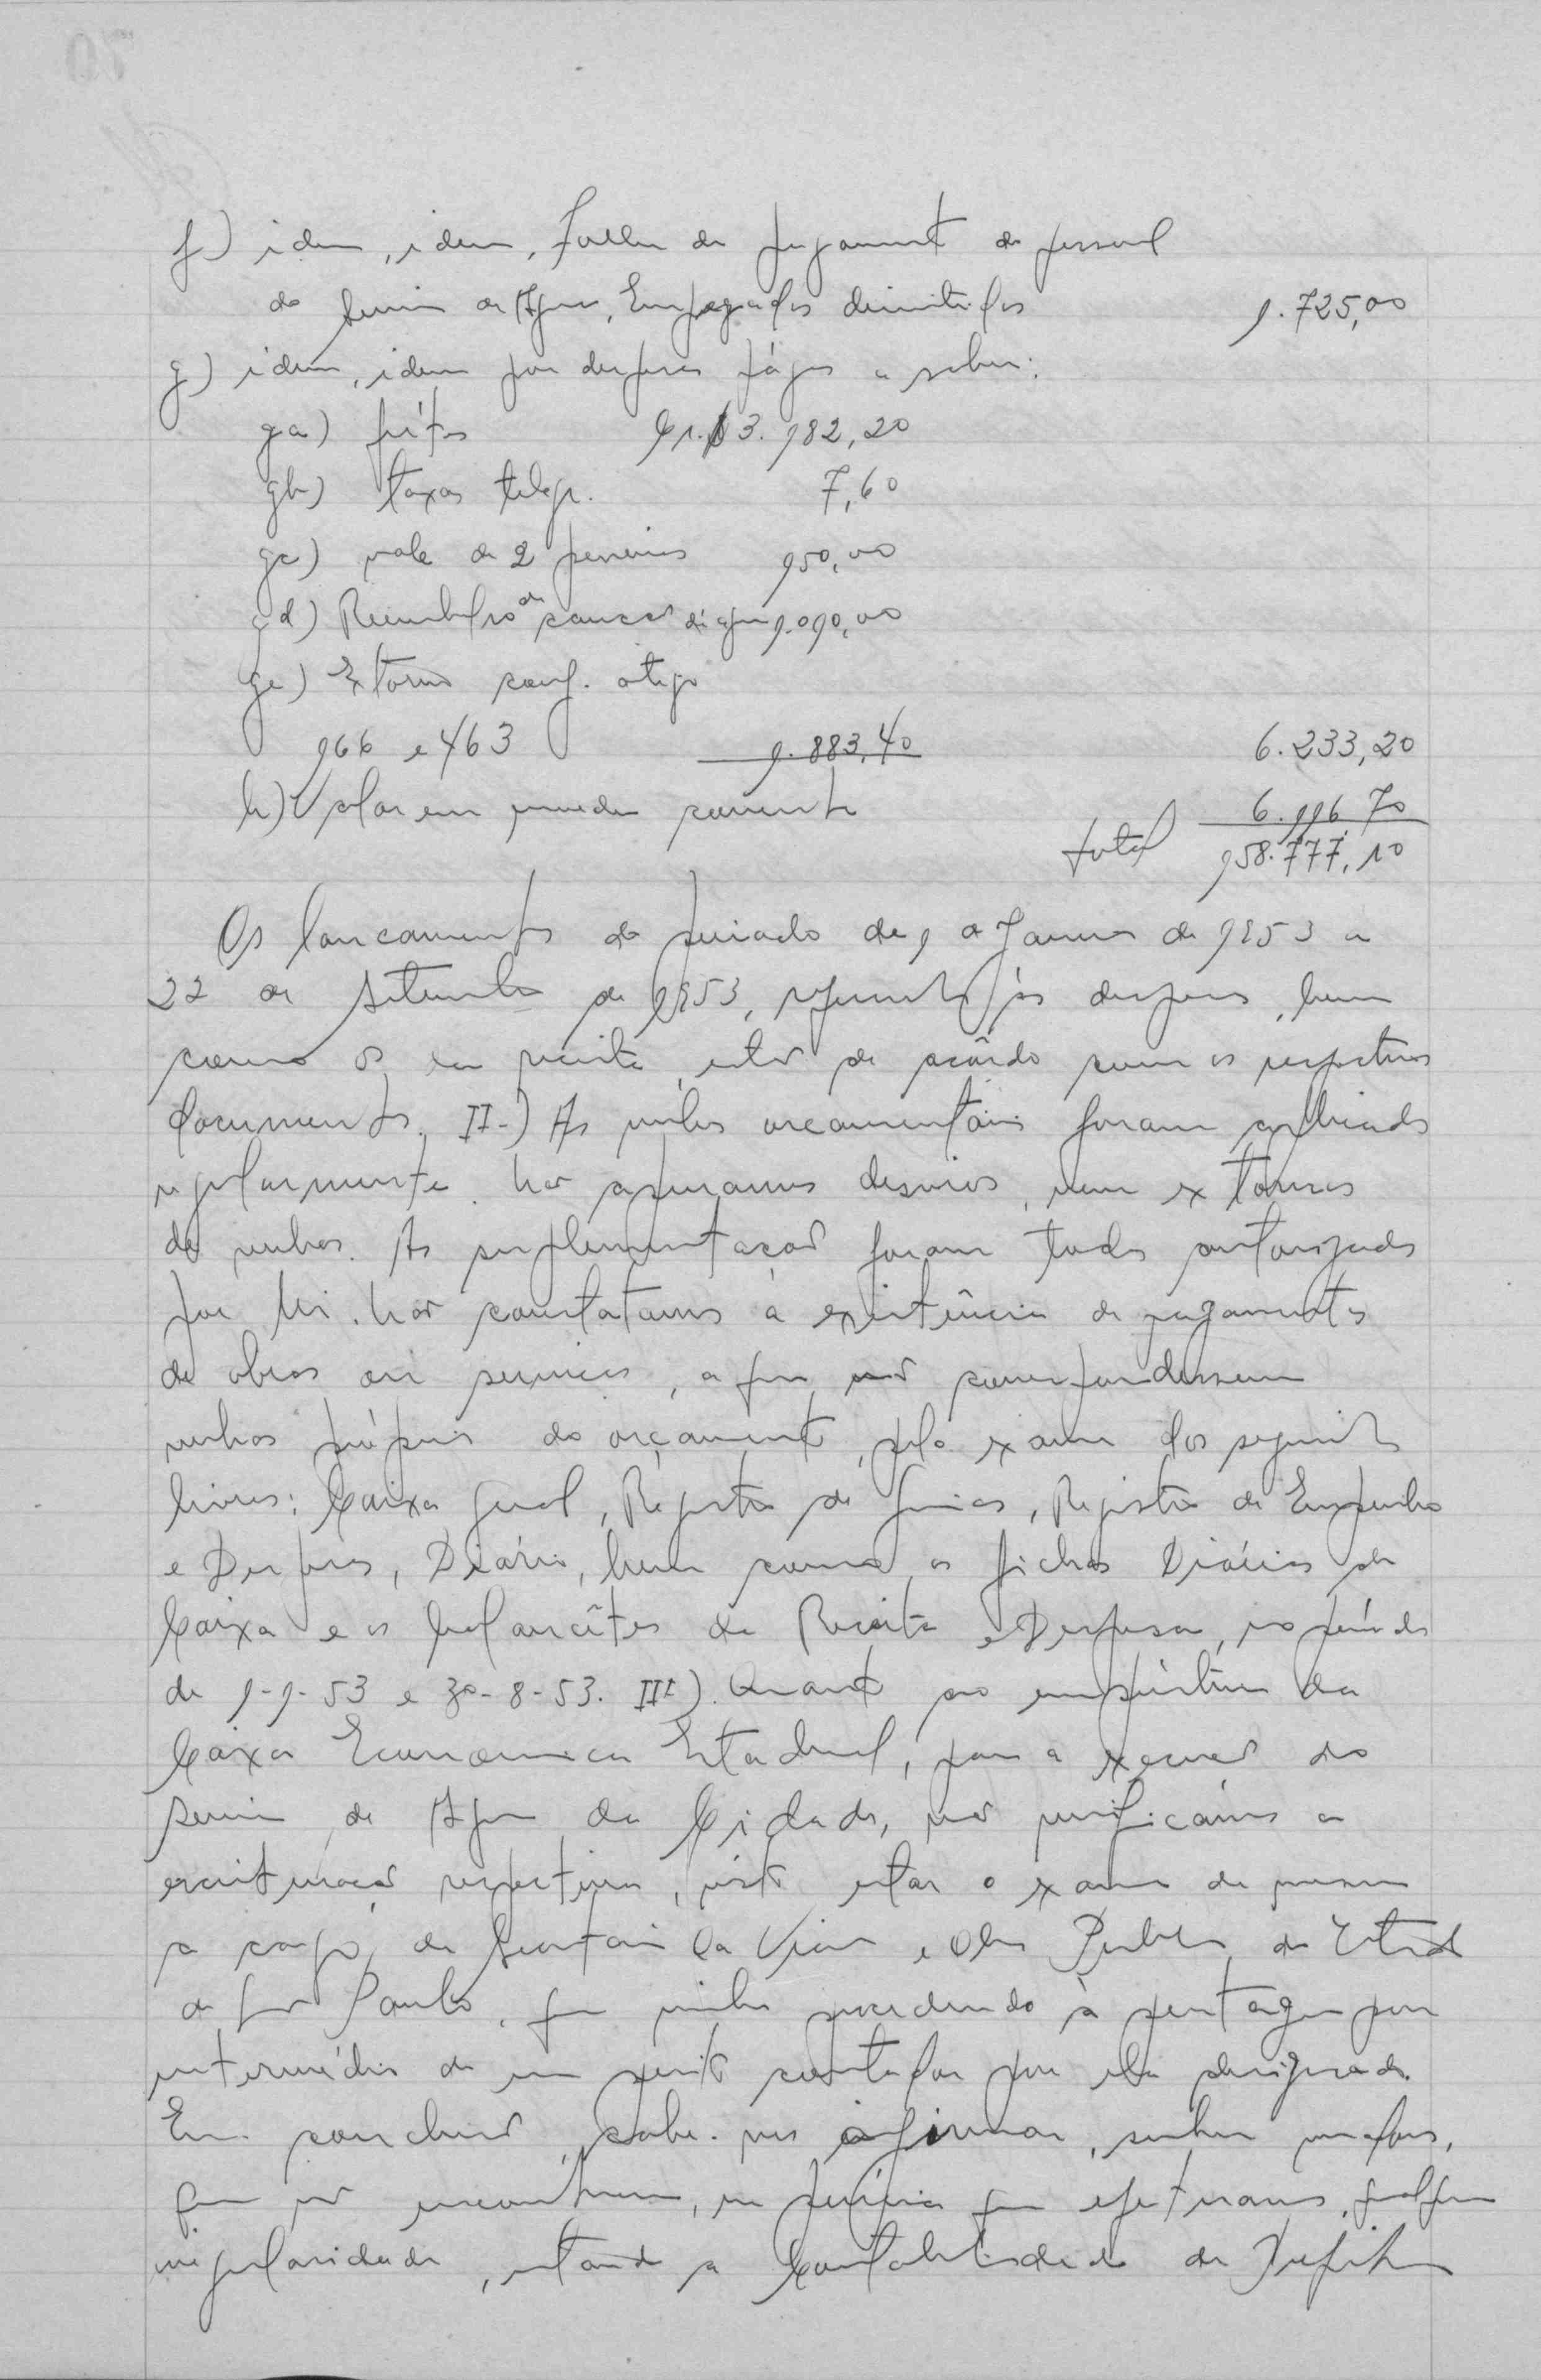 f) idem, idem, folha de pagamento do pessoal
do Serviço de Agua, Empregados demitidos 1.725,00
g) idem, idem por despesas págas a saber:
ga) frétes Cr.$ 3.182,20
gb) taxas telegr. 7,60
gc) vale de 2 150,00
gd) Reembolso de caução de agua 1.010,00
ge) Extorno conf. artigo
166 e 463 1.883,40 6.233,20
h) Valor em moeda corrente 6.116,70
total 158.777,10
Os lançamentos do periodo de 1 de Janeiro de 1953 a
22 de Setembro de 1953, referente às despesas, bem
como os da receita, estão de acôrdo com os respectivos
documentos. II-) As verbas orçamentárias foram aplicadas
regularmente. Não apuramos desvios, nem extornos
de verbas. As suplementações foram todas autorizadas
por lei. Não constatamos a existência de pagamentos
de obras ou serviços, a que não correspondessem
verbas próprias do orçamento, pelo exame dos seguintes
livros: Caixa Geral, Registro de Guias, Registro de Empenho
e Despesas, Diário, bem como as fichas Diárias de
Caixa e os balancêtes da Receita e Despesa, no período
de 1-1-53 e 30-8-53. III) Quanto ao empréstimo da
Caixa Economica Estadual, para a execução do
Serviço de Agua da Cidade, não verificámos a
escrituração respectiva, visto estar o exame da mesma
a cargo da Secretaria da Viação e Obras Publicas do Estado
de São Paulo, que vinha procedendo à contagem por
intermédio de um perito contador por ela designado.
Em conclusão, cabe-nos afirmar, senhores vereadores,
que não encontramos, na perícia que efetuamos, qualquer
irregularidade, estando a Contabilidade da Prefeitura